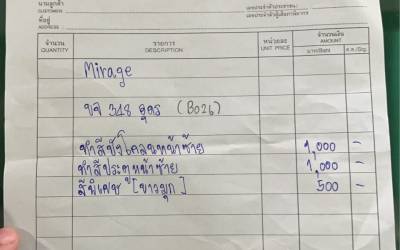 นามลูกค้า
CUSTOMER
ที่อยู่
เลขประจำตัวประชาชน
เลขประจำตัวผู้เสียภาษีอากร
จำนวน
QUANTITY
รายการ
DESCRIPTION
หน่วยละ
UNIT PRICE
จำนวนเงิน
AMOUNT
บาท/Baht
ส.ต./Stg.
Mirage
ขจ 348 อุดร (B026)
ทำสีบังโคลนหน้าซ้าย 1,000 -
ทำสีประตูหน้าซ้าย 1,000 -
สีพิเศษ [ขาวมุก] 500 -